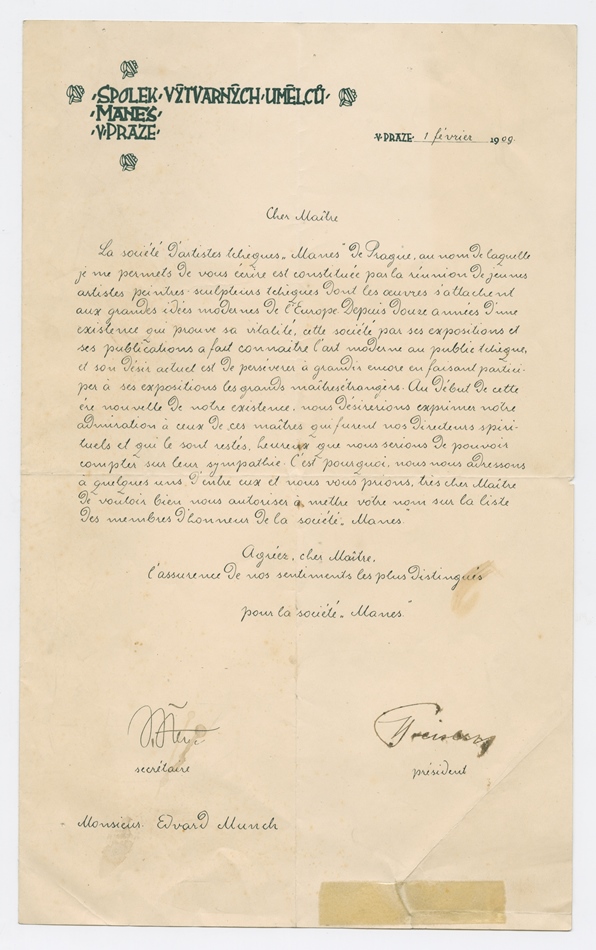 ·SPOLEK·VÝTVARNÝCH·UMĚLCŮ·
·MANES·
·V·PRAZE·
V·PRAZE 1 février 1909.
Cher Maître
La société d'artistes tchèques „Manes" de Prague, au nom de laquelle
je me permets de vous écrire est constituée par la réunion de jeunes
artistes peintres-sculpteurs tchèques dont les œuvres s'attachent
aux grandes idées modernes de l'Europe. Depuis douze années d'une
existence qui prouve sa vitalité, cette société par ses expositions et
ses publications a fait connaître l'art moderne au public tchèque,
et son désir actuel est de persévérer à grandir encore en faisant partici-
per à ses expositions les grands maîtres étrangers. Au début de cette
ère nouvelle de notre existence, nous désirerions exprimer notre
admiration à ceux de ces maîtres qui furent nos directeurs spiri-
tuels et qui le sont restés, heureux que nous serions de pouvoir
compter sur leur sympathie. C'est pourquoi, nous nous adressons
à quelques uns d'entre eux et nous vous prions, très cher Maître
de vouloir bien nous autoriser à mettre votre nom sur la liste
des membres d'honneur de la société „Manes"
Agréez, cher Maître,
l'assurence de nos sentiments les plus distingués
pour la société „Manes"
secrétaire
président
Monsieur Edvard Munch